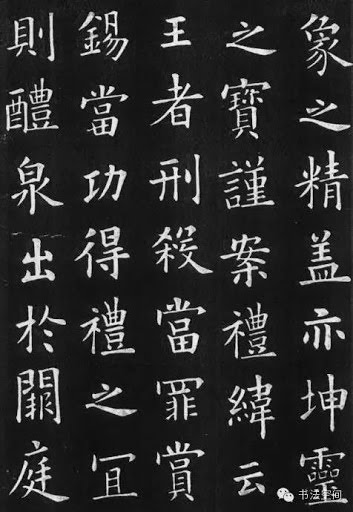 象之精盖亦坤靈
之寶謹案禮緯云
王者刑殺當罪賞
錫當功得禮之冝
則醴泉出於闕庭
书法空间